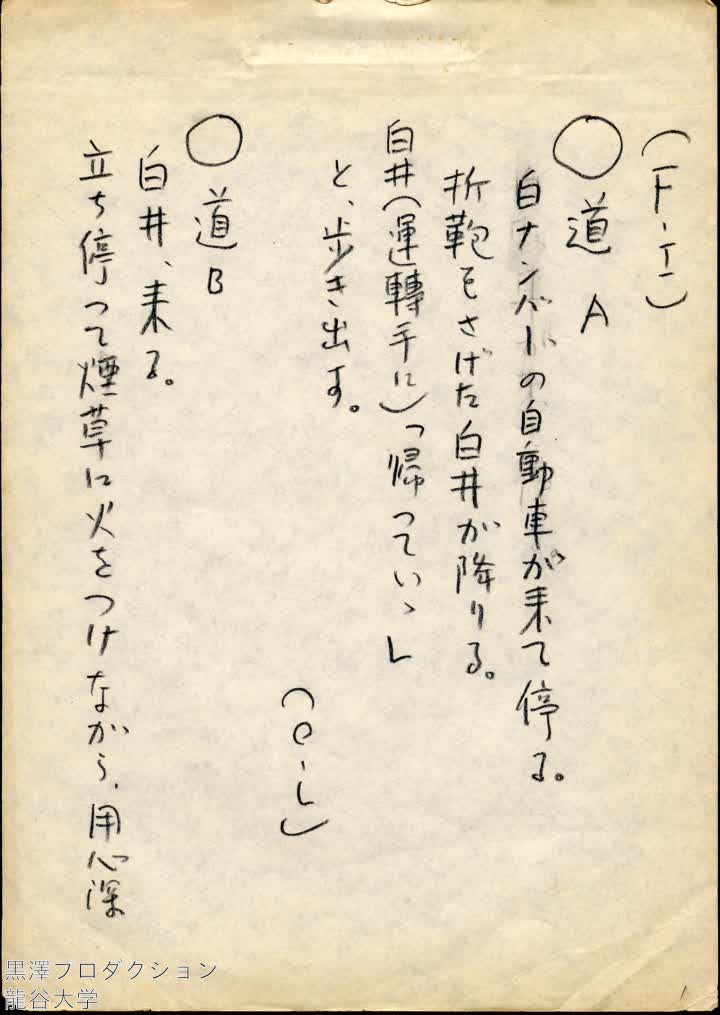 (F・I)
○道 A
自ナンバーの自動車が来て停る。
折鞄をさげた白井が降りる。
白井(運轉手に)「帰っていゝ」
と、歩き出す。
(O・L)
○道 B
白井、来る。
立ち停って煙草に火をつけながら、用心深
1
黒澤プロダクション
龍谷大学